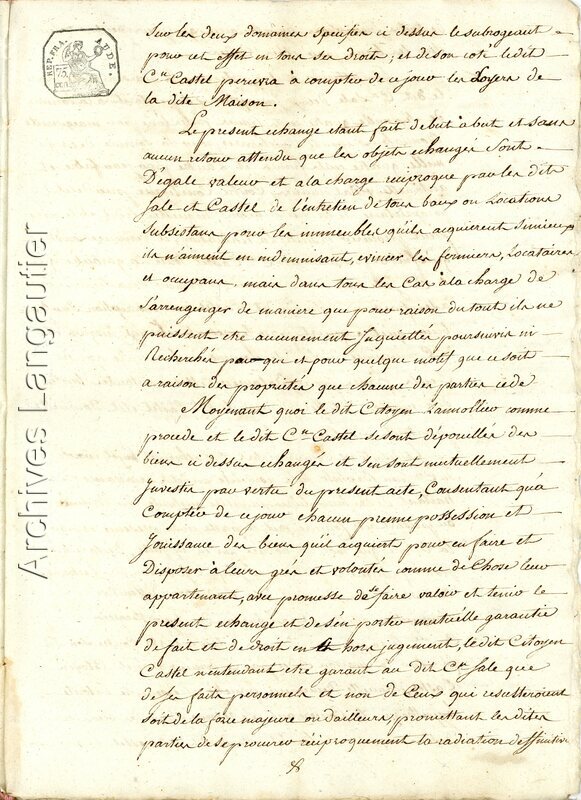 REP. FRA. AUDE.
75
Sur les deux domaines specifiés ci dessus le subrogeant
pour cet effet en tous ses droits, et de son coté le dit
Cen. Castel percevra à compter de ce jour les Loyers de
la dite Maison.
Le present echange etant fait de but à but et sans
aucun retour attendu que les objets echangés Sont
D'egale valeur et à la charge reciproque par les dits
Sale et Castel de l'entretien de tous baux ou Locations
Subsistans pour les immeubles qu'ils acquierent Si mieux
ils n'aiment en indemnisant, evincer les fermiers, Locataires
et occupans, mais dans tous les Cas à la charge de
S'arrenger de maniere que pour raison du tout ils ne
puissent etre aucunement Inquiettés poursuivis ni
Recherchés par qui et pour quelque motif que ce soit
a raison des proprietés que chacune des parties cede
Moyenant quoi le dit Citoyen comme
procede et le dit Cen. Castel se sont dépouillés des
biens ci dessus echangés et s'en sont mutuellement
Investis par vertu du present acte, Consentant qu'à
Compter de ce jour chacun prenne possession et
Jouissance des biens qu'il acquiert pour en faire et
Disposer à leurs grés et volontés comme de Chose leur
appartenant, avec promesse de se faire valoir et tenir le
present echange et de s'en porter mutuelle garantie
de fait et de droit en et hors jugement, le dit Citoyen
Castel n'entendant etre garant au dit Cen. Sale que
de ses faits personnels et non de Ceux qui resulteroient
soit de la force majeure ou d'ailleurs, promettant les dites
parties de se procurer reciproquement la radiation deffinitive
Archives Langautier